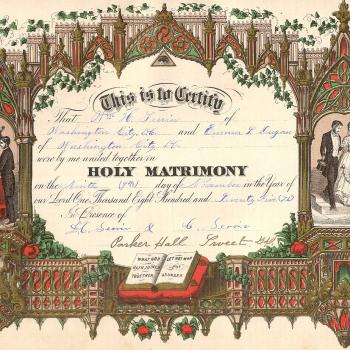 This is to Certify
That Wm H. Perrin of
Washington City, and Emma F. Dugan
of Washington City
were by me united together in
HOLY MATRIMONY
on the Ninth (9th) day of November in the Year of
our Lord One Thousand Eight Hundred and Seventy
In Presence of
&
Parker Hall Sweet
WHAT GOD HATH JOINED TOGETHER
LET NOT MAN PUT ASUNDER